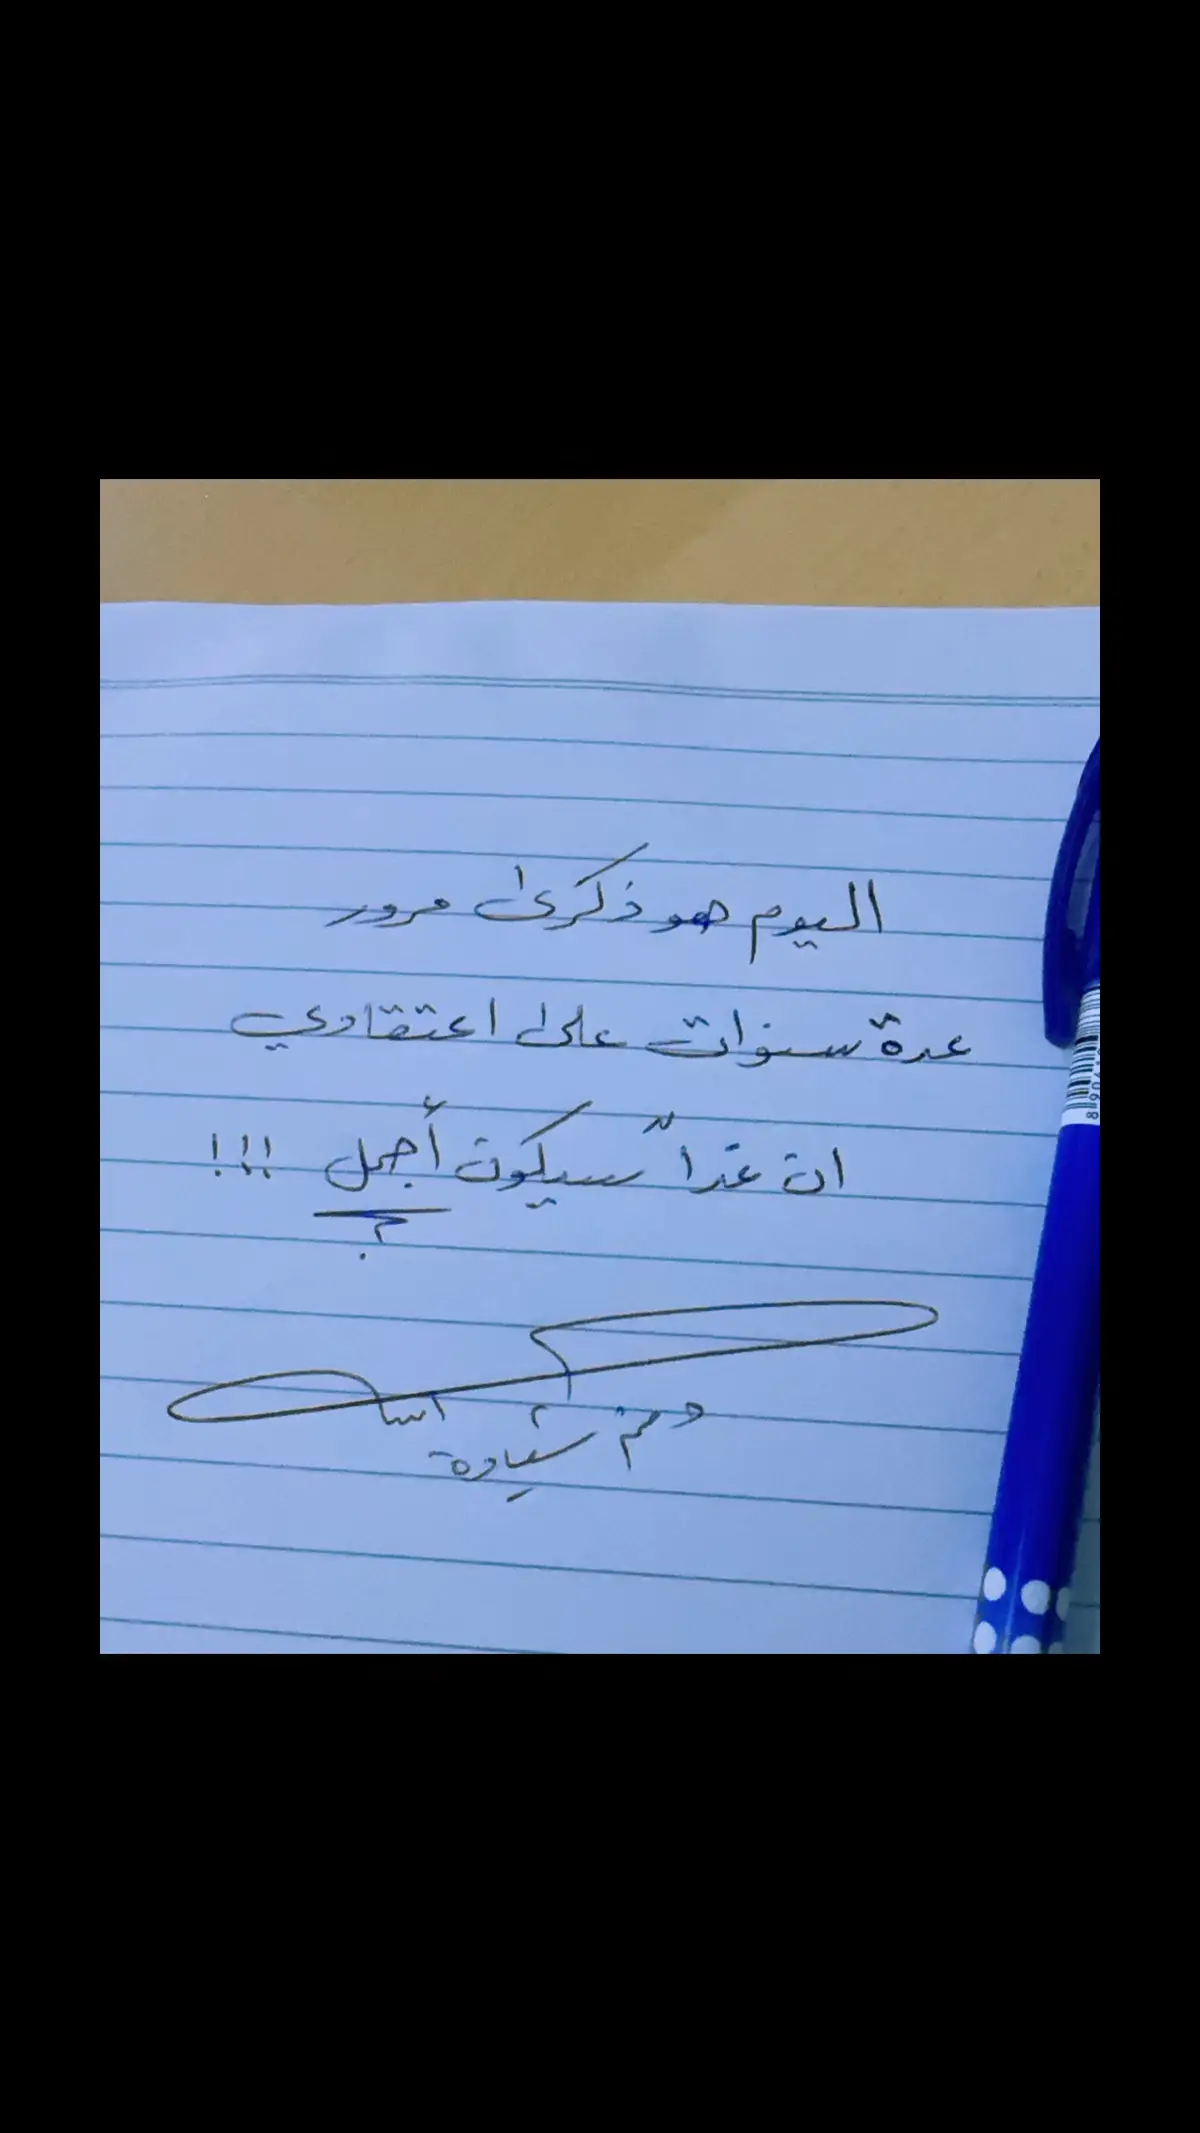 اليوم هو ذكرى مرور
عدة سنوات على اعتقادي
ان غداً سيكون أجمل !!!
؟